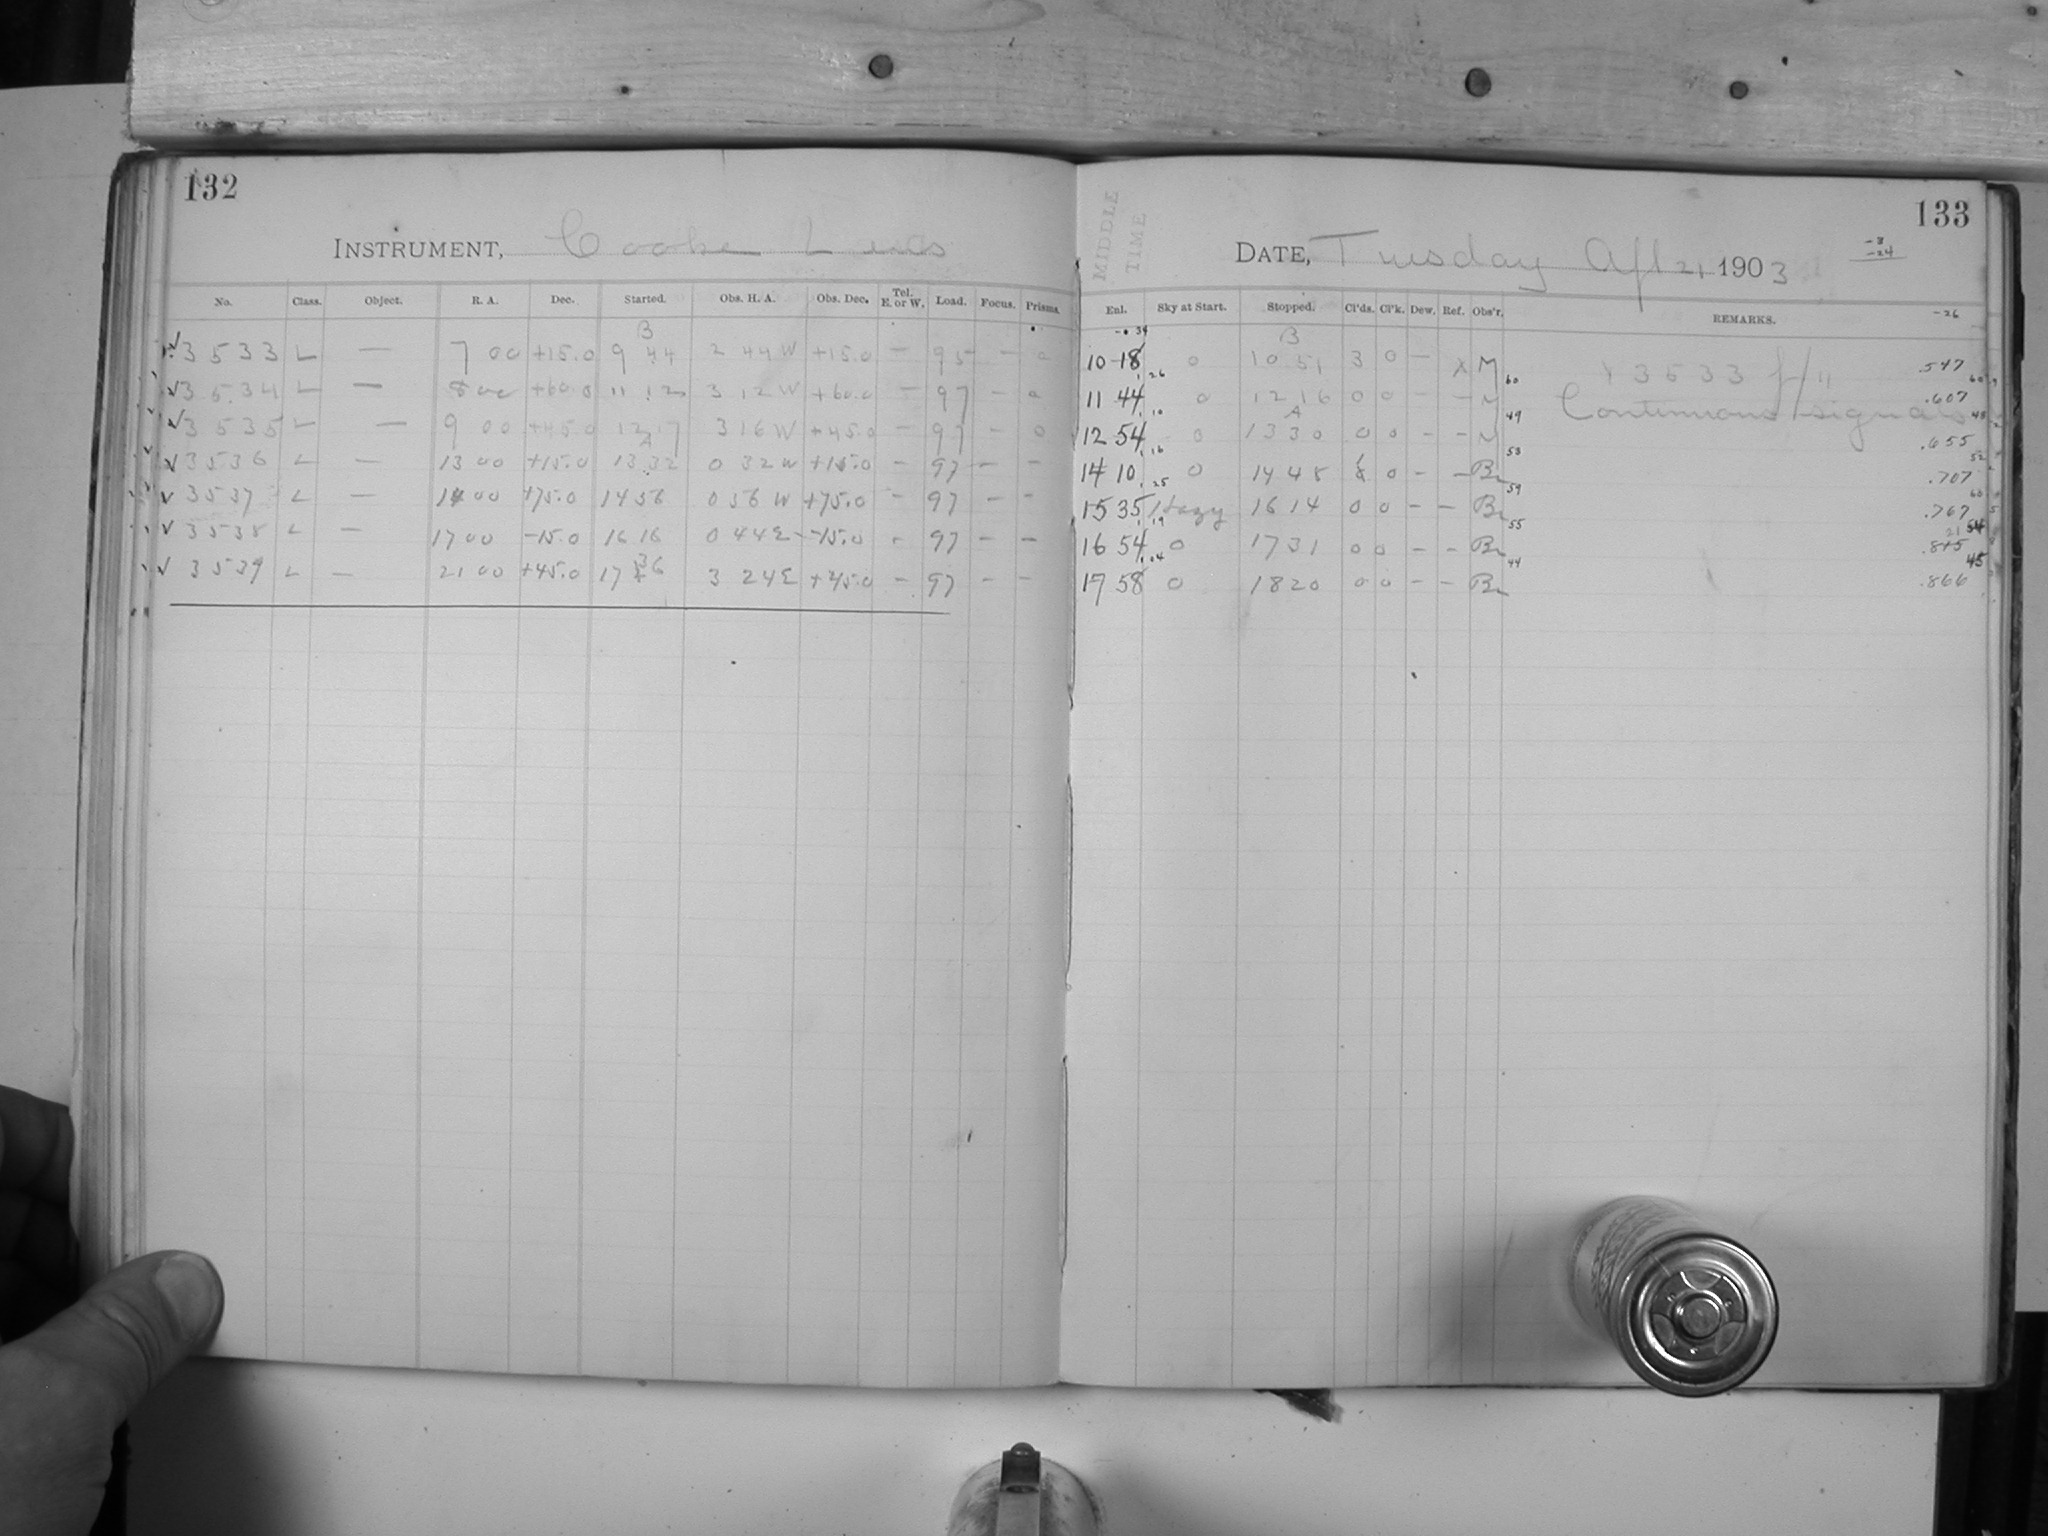 132
INSTRUMENT, Cooke Lens
No. Class. Object. R. A. Dec. Started. Obs. H. A. Obs. Dec. Tel. E. or W. Load. Focus. Prisms.
B
3533 L — 7 00 +15.0 9 44 2 44 W +15.0 — 95 — 0
3534 L — 8 00 +60.0 11 12 3 12 W +60.0 — 97 — 0
3535 L — 9 00 +45.0 12 17 3 16 W +45.0 — 97 — 0
A
3536 L — 13 00 +15.0 13 32 0 32 W +15.0 — 97 — —
3537 L — 14 00 +75.0 14 56 0 56 W +75.0 — 97 — —
3538 L — 17 00 -15.0 16 16 0 44 E -15.0 - 97 — —
3539 L — 21 00 +45.0 17 36 3 24 E +45.0 — 97 — —
133
MIDDLE TIME
DATE, Tuesday Apl 21, 1903
-24
Enl. Sky at Start. Stopped. Cl'ds. Cl'k. Dew. Ref. Obs'r. REMARKS.
-26
B
10 18 0 10 51 3 0 — X M 3533 f/11 .547
26 60
11 44 0 12 16 0 0 — — M Continuous signals .607
10 A 49 48
12 54 0 13 30 0 0 — — M .655
16 53 52
14 10 0 14 48 0 — — Br .707
25 59 60
15 35 Hazy 16 14 0 0 — — Br .767
19 55 54
16 54 0 17 31 0 0 — — Br
04 44 45
17 58 0 18 20 0 0 — — Br .866